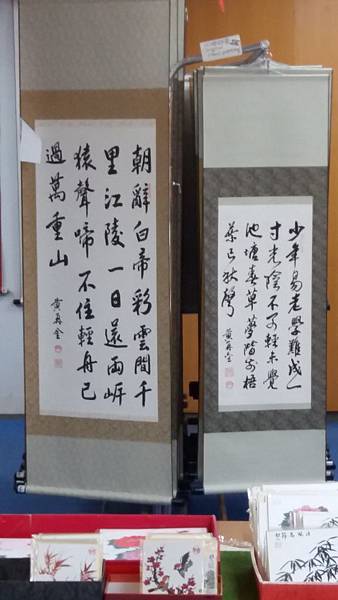 朝辭白帝彩雲間千
里江陵一日還兩岸
猿聲啼不住輕舟已
過萬重山
少年易老學難成一
寸光陰不可輕未覺
池塘春草夢階前梧
葉已秋聲